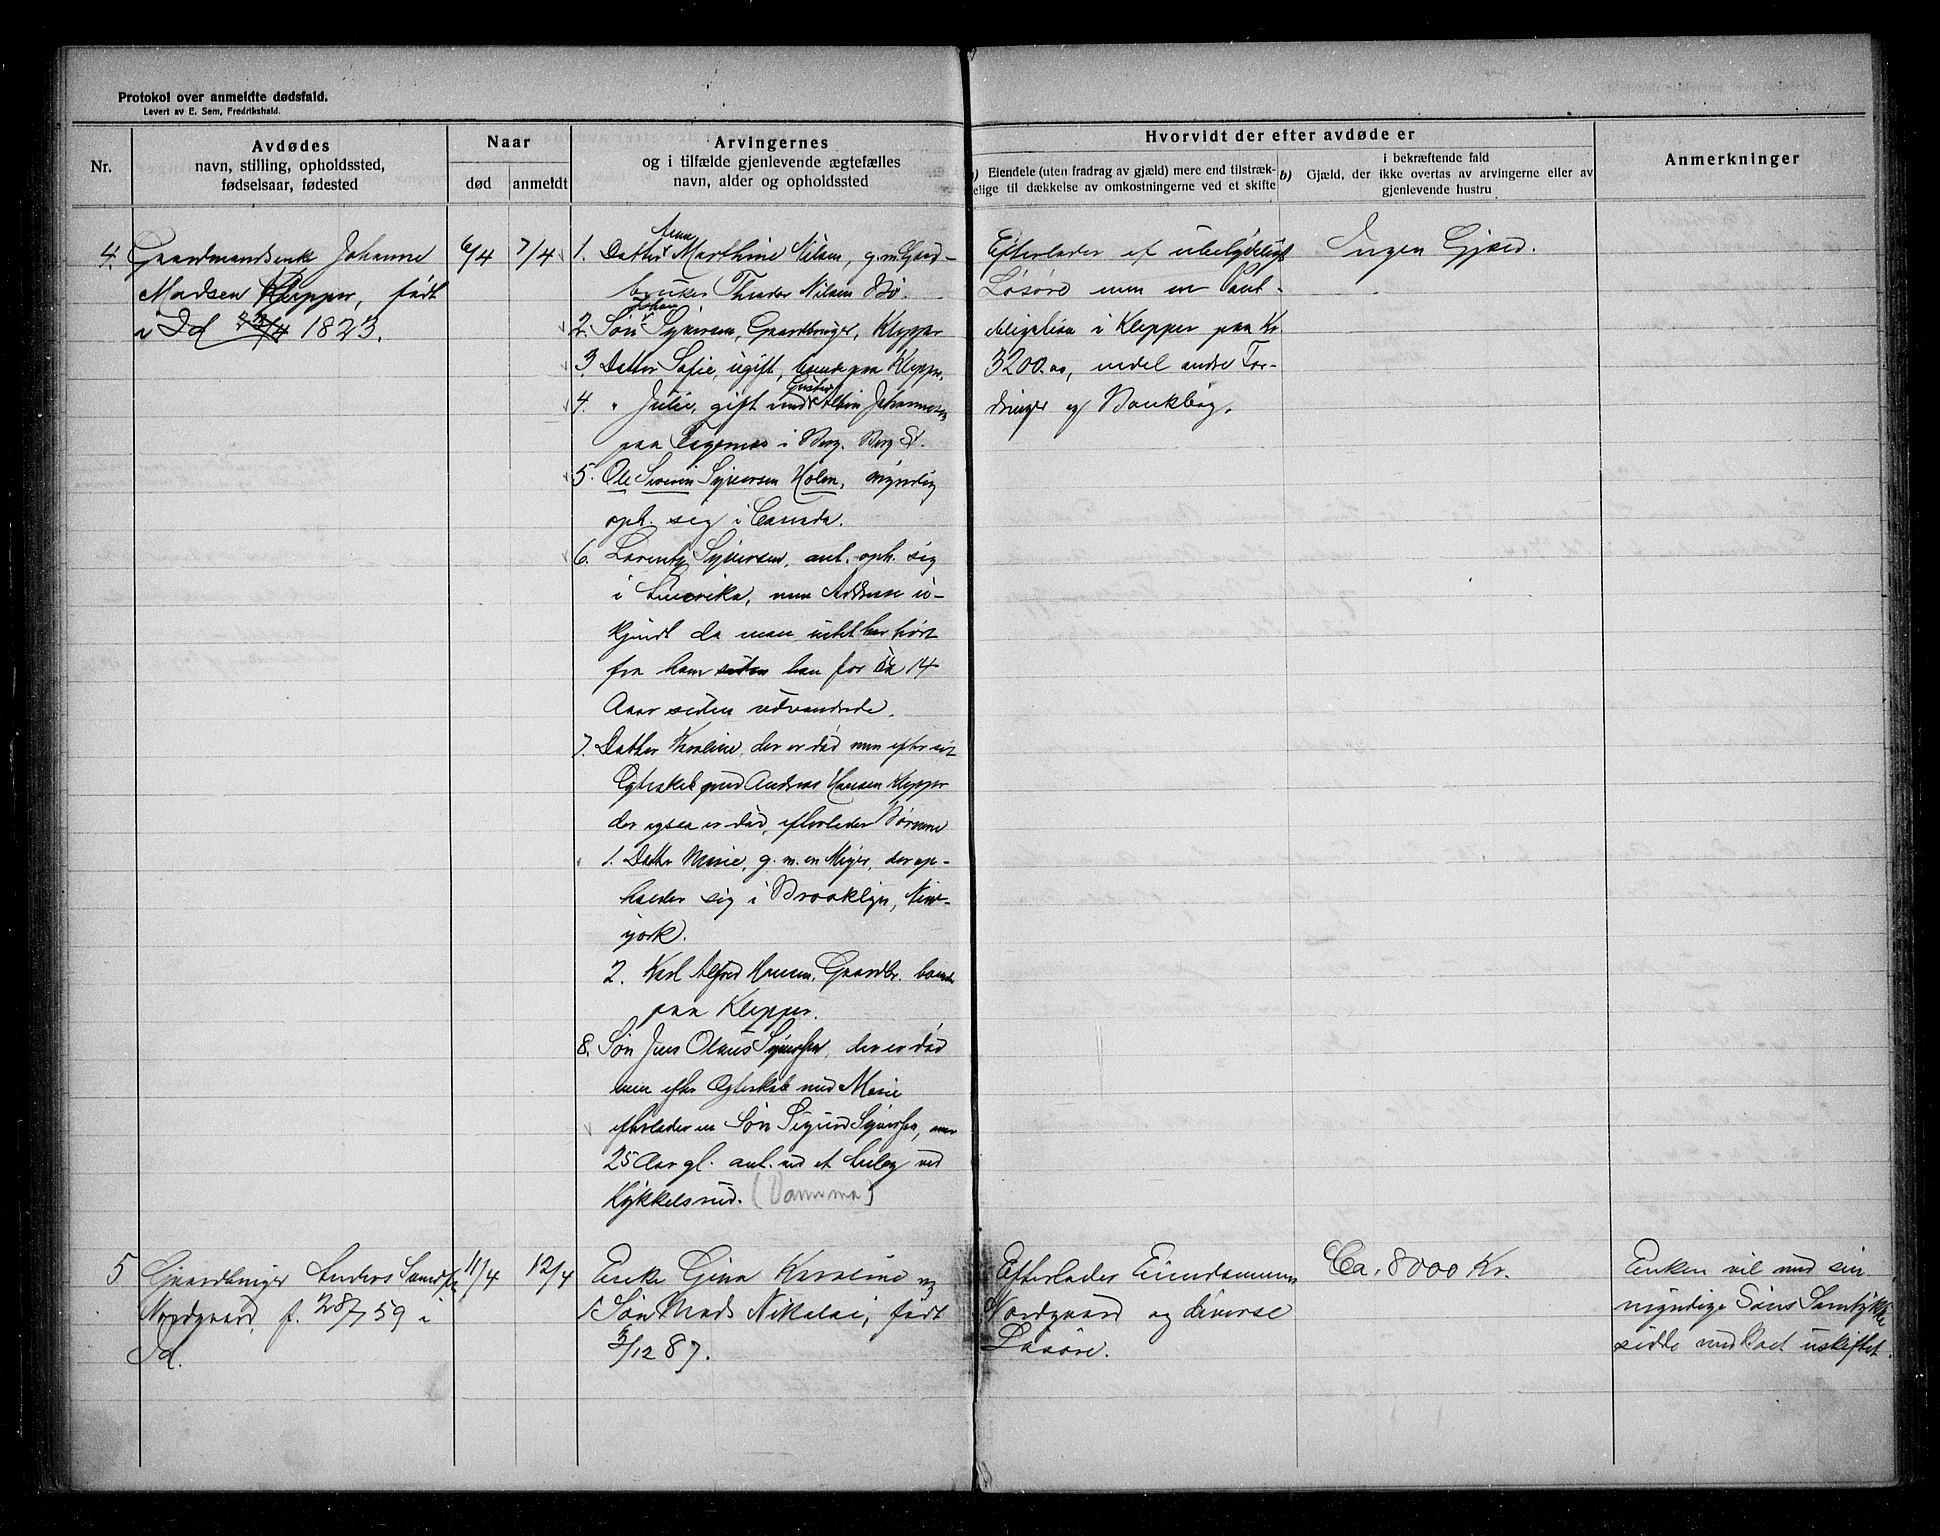 Protokol over anmeldte dødsfald.
Levert av E. Sem, Fredrikshald.
Nr.
Avdødes
navn, stilling, opholdssted,
fødselsaar, fødested
Naar
død
anmeldt
Arvingernes
og i tilfælde gjenlevende ægtefælles
navn, alder og opholdssted
Hvorvidt der efter avdøde er
Eiendele (uten fradrag av gjæld) mere end tilstræk-
kelige til dækkelse av omkostningerne ved et skifte
i bekræftende fald
b) Gjæld, der ikke overtas av arvingerne eller av
gjenlevende hustru
Anmerkninger
4.
Gaardmandsenke Johanne
Madsen Klepper, født
i Id 23/4 1823.
6/4
7/4
1. Datter Anna Marthine Nilsen, g.m. Gaard-
bruker Theodor Nilsen Bø.
2. Søn Johan Syversen, Gaardbruger, Klepper
3. Datter Sofie, ugift, boende paa Klepper.
4. " Julie, gift med Gustav Albin Johannesen
paa i Berg. Berg St.
5. Ole Severin Syversen Holm, myndig
oph. sig i Canada.
6. Lorentz Syversen, ant. oph. sig
i Amerika, men Addresse u-
kjendt da man intet har hørt
fra ham siden han for ca 14
Aar siden udvandrede.
7. Datter Karoline, der er død men efter sit
Egteskab med Andreas Hansen Klepper
der ogsaa er død, efterlader Børnene
1. Datter Marie, g. m. en Meyer, der op-
holder sig i Brooklyn, New-
york.
2. Karl Alfred Hansen, Gaardbr. boende
paa Klepper.
8. Søn Jens Olaus Syversen, der er død
men efter Egteskab med Marie
efterlader en Søn Sigurd Syversen,
25 Aar gl. ant. ved et Anlæg ved
Kykkelsrud. (Vamma)
Efterlader et ubetydeligt
Løsøre men en Pant-
obligation i Klepper paa Kr
3200.00, endel andre For-
dringer og Bankbog.
Ingen Gjæld.
5
Gaardbruger Anders
Nordgaard, f. 28/7 59 i
Id.
11/4
12/4
Enke Gina Karoline og
Søn Mads Nikolai, født
3/12 87.
Efterlader Eiendommen
Nordgaard og diverse
Løsøre.
Ca. 8000 Kr.
Enken vil med sin
myndige Søns Samtykke
sidde med Boet uskiftet.